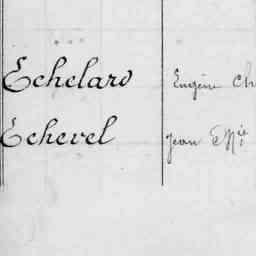 Echelard Eugène Ch
Echevel Jean Mie